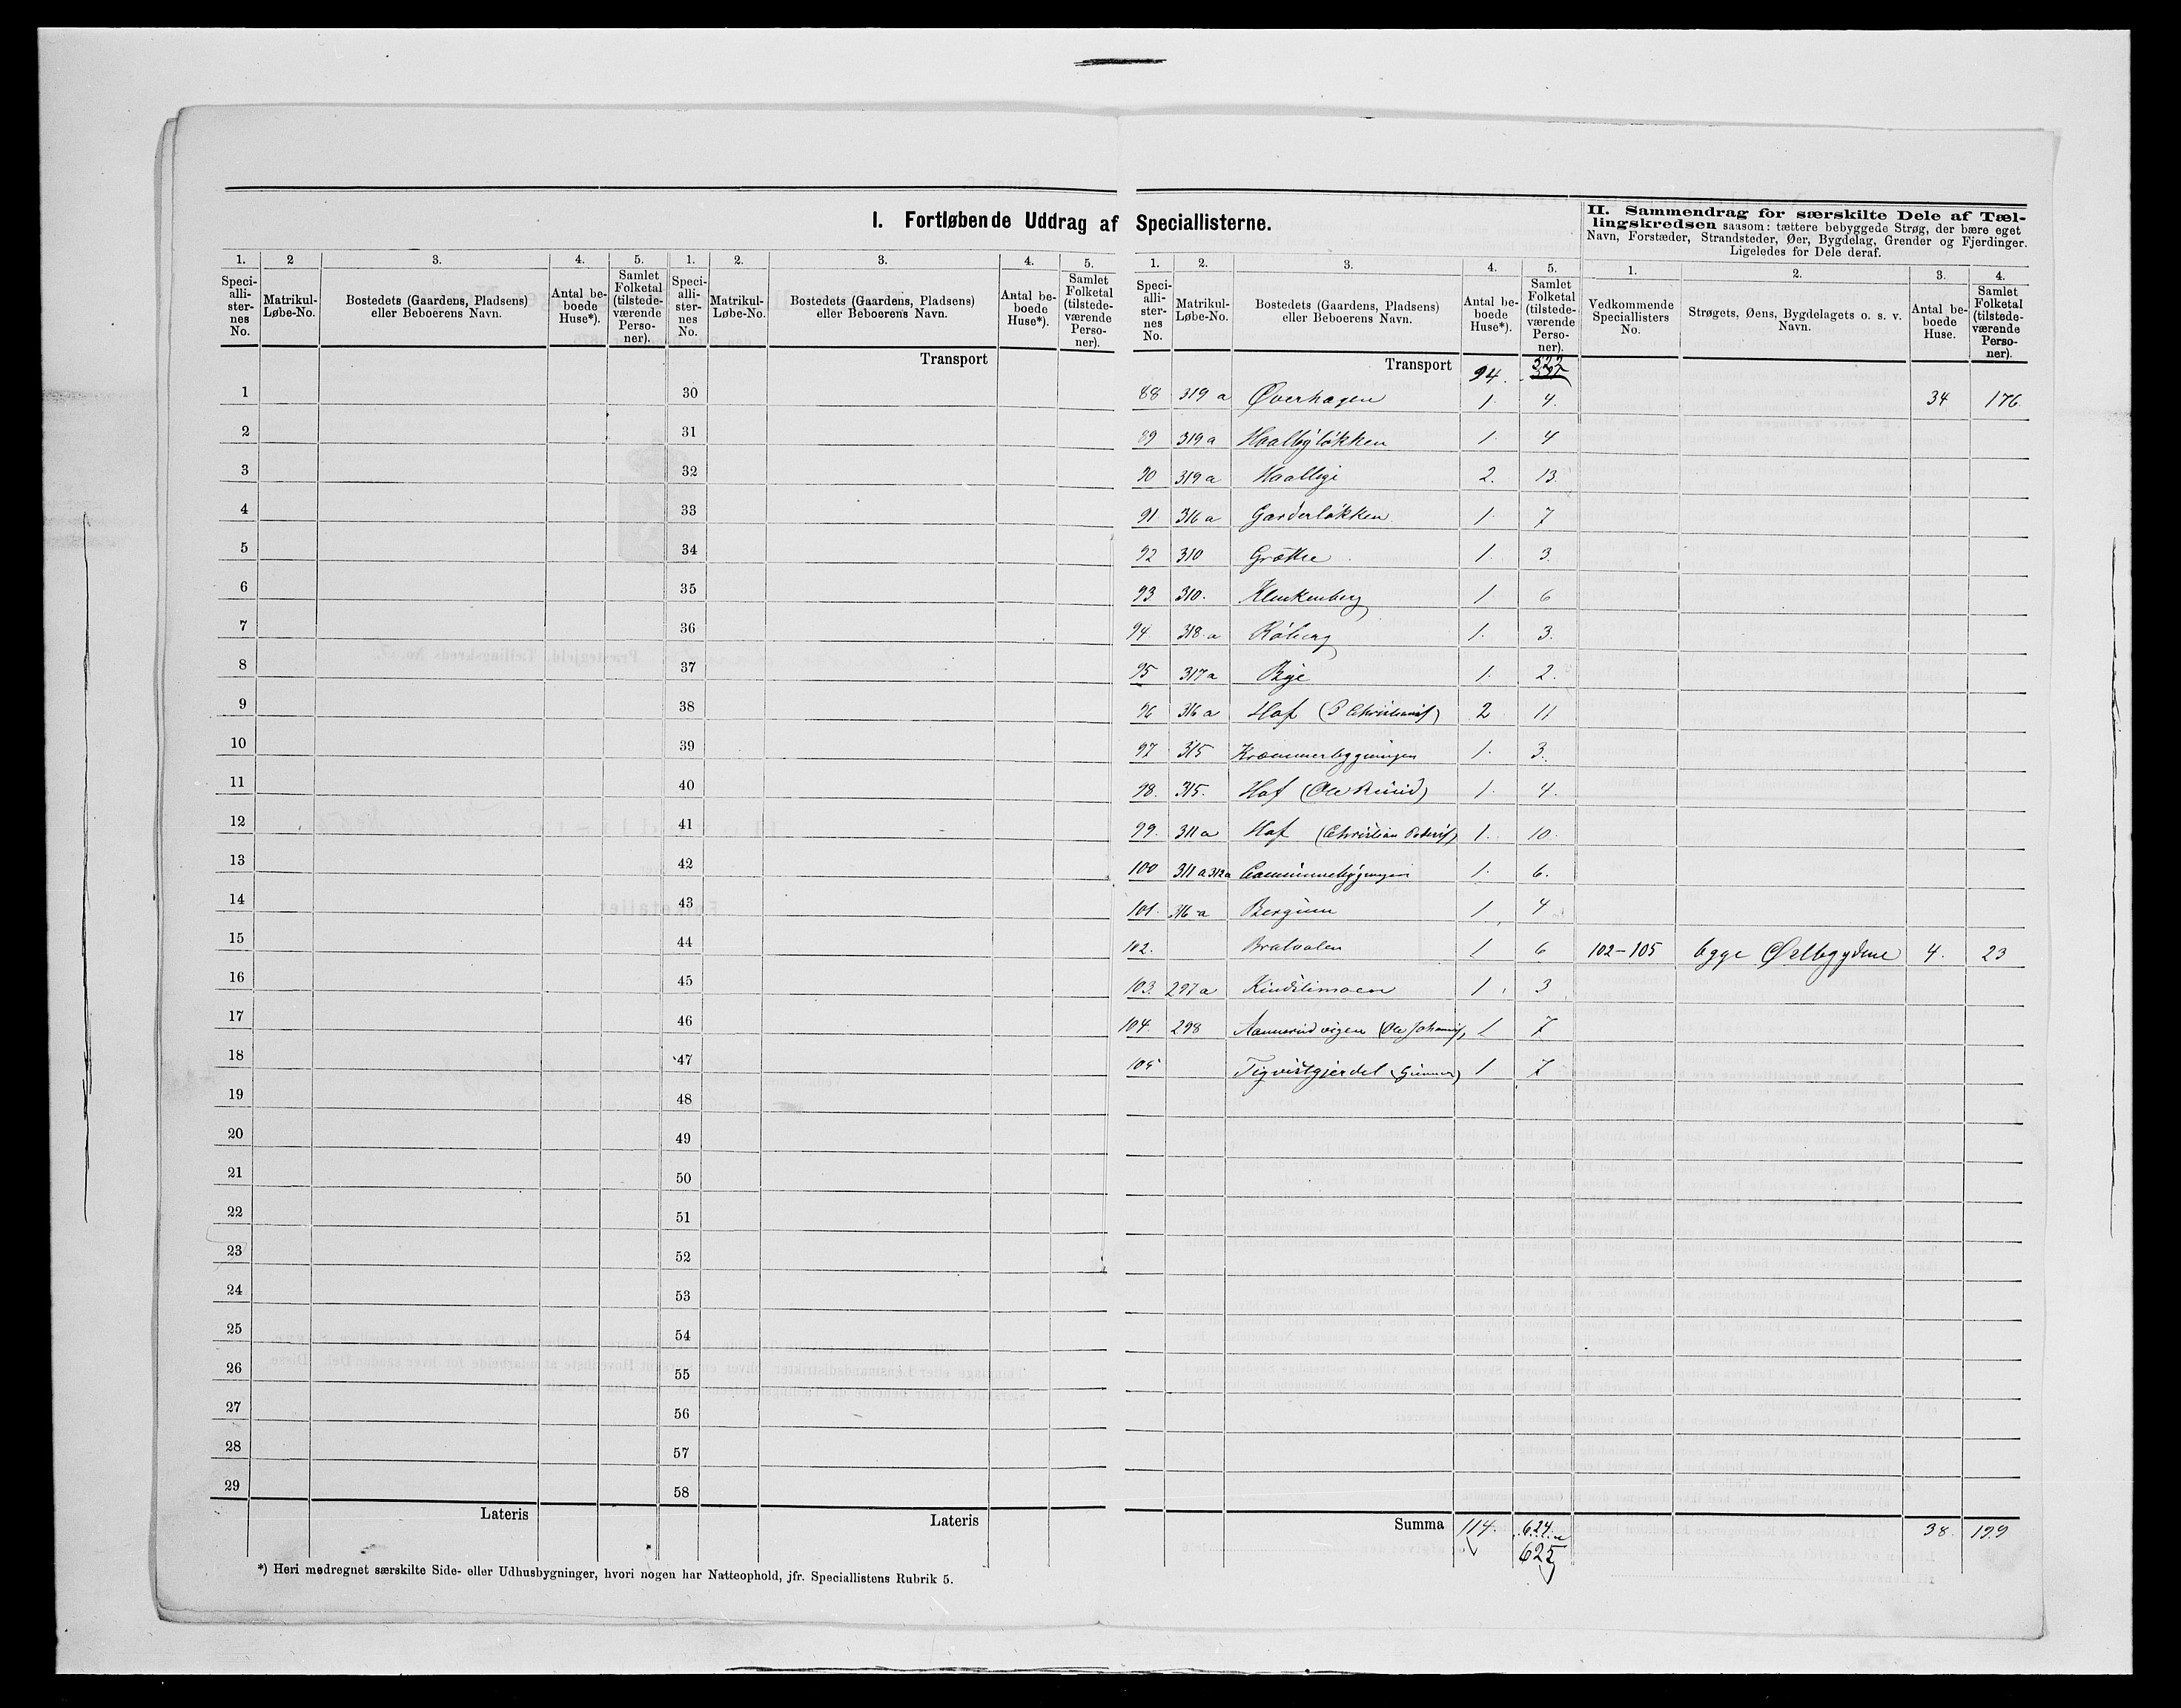 I. Fortløbende Uddrag af Speciallisterne.
II. Sammendrag for særskilte Dele af Tæl-
lingskredsen saasom: tættere bebyggede Strøg, der bære eget
Navn, Forstæder, Strandsteder, Øer, Bygdelag, Grender og Fjerdinger.
Ligeledes for Dele deraf.
1. 2 3. 4. 5. 1. 2. 3. 4. 5.
Speciallisternes No. Matrikul-Løbe-No. Bostedets (Gaardens, Pladsens) eller Beboerens Navn. Antal beboede Huse*). Samlet Folketal (tilstedeværende Personer). Speciallisternes No. Matrikul-Løbe-No. Bostedets (Gaardens, Pladsens) eller Beboerens Navn. Antal beboede Huse*). Samlet Folketal (tilstedeværende Personer).
Transport
1 30
2 31
3 32
4 33
5 34
6 35
7 36
8 37
9 38
10 39
11 40
12 41
13 42
14 43
15 44
16 45
17 46
18 47
19 48
20 49
21 50
22 51
23 52
24 53
25 54
26 55
27 56
28 57
29 58
Lateris Lateris
*) Heri medregnet særskilte Side- eller Udhusbygninger, hvori nogen har Natteophold, jfr. Speciallistens Rubrik 5.
1. 2. 3. 4. 5. 1. 2. 3. 4.
Speciallisternes No. Matrikul-Løbe-No. Bostedets (Gaardens, Pladsens) eller Beboerens Navn. Antal beboede Huse*). Samlet Folketal (tilstedeværende Personer). Vedkommende Speciallisters No. Strøgets, Øens, Bygdelagets o. s. v. Navn. Antal beboede Huse. Samlet Folketal (tilstedeværende Personer).
Transport 94. 522
88 319 a Øverhagen 1. 4. 34 176
89 319 a Haalbyløkken 1. 4
90 319 a 2. 13
91 316 a Garderløkken 1. 7
92 310 Grøtte 1. 3.
93 310. Klenkenberg 1 6
94 318 a Røberg 1. 3.
95 317 a Bye 1. 2.
96 316 a Hof 2 11
97 315 Kræmmerbygningen 1. 3.
98. 315. Hof (Ole) 1. 4.
99. 311 a Hof (Christian Peders) 1. 10.
100 311 a 312 a 1. 6.
101. 316 a Bergum 1 4
102. Bratvolen 1 6 102-105 4. 23
103. 297 a Kindslimoen 1. 3
104. 298 (Ole Johannes) 1 7
105 1 7
Summa 114. 624 38. 199
625